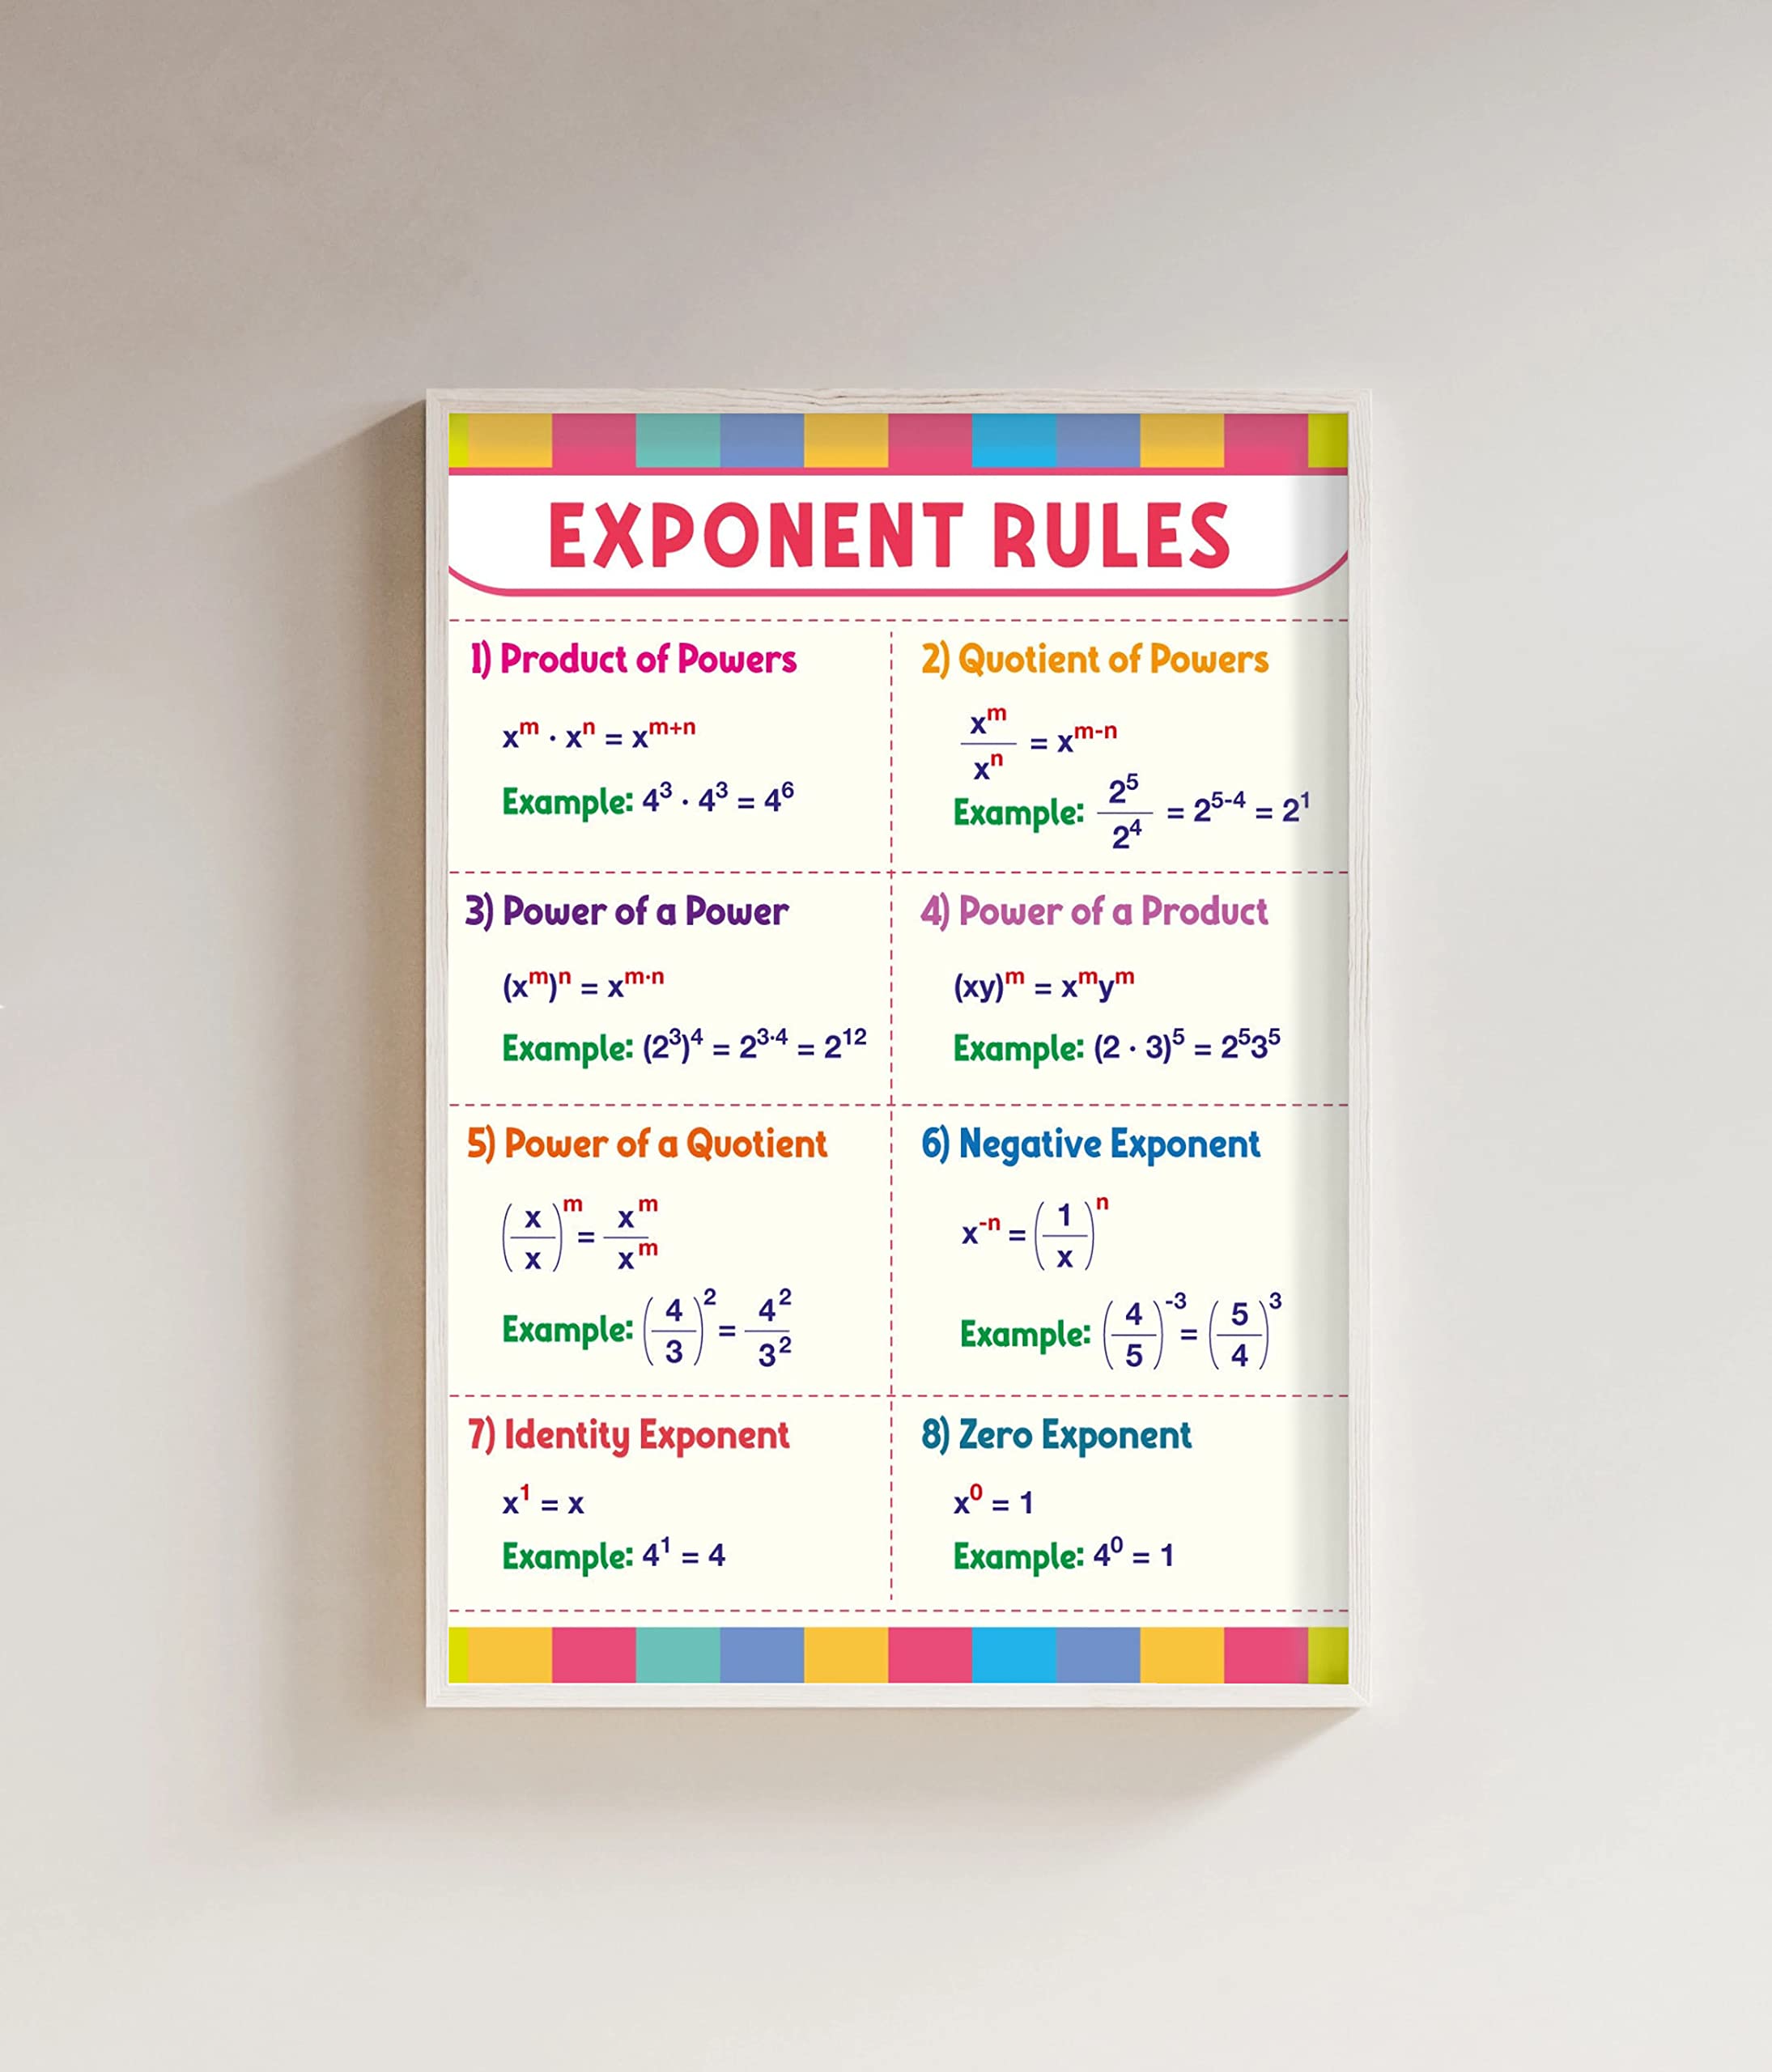 EXPONENT RULES
1) Product of Powers
x^m · x^n = x^(m+n)
Example: 4^3 · 4^3 = 4^6
2) Quotient of Powers
x^m / x^n = x^(m-n)
Example: 2^5 / 2^4 = 2^(5-4) = 2^1
3) Power of a Power
(x^m)^n = x^(m·n)
Example: (2^3)^4 = 2^(3·4) = 2^12
4) Power of a Product
(xy)^m = x^m y^m
Example: (2 · 3)^5 = 2^5 3^5
5) Power of a Quotient
(x / x)^m = x^m / x^m
Example: (4 / 3)^2 = 4^2 / 3^2
6) Negative Exponent
x^-n = (1 / x)^n
Example: (4 / 5)^-3 = (5 / 4)^3
7) Identity Exponent
x^1 = x
Example: 4^1 = 4
8) Zero Exponent
x^0 = 1
Example: 4^0 = 1